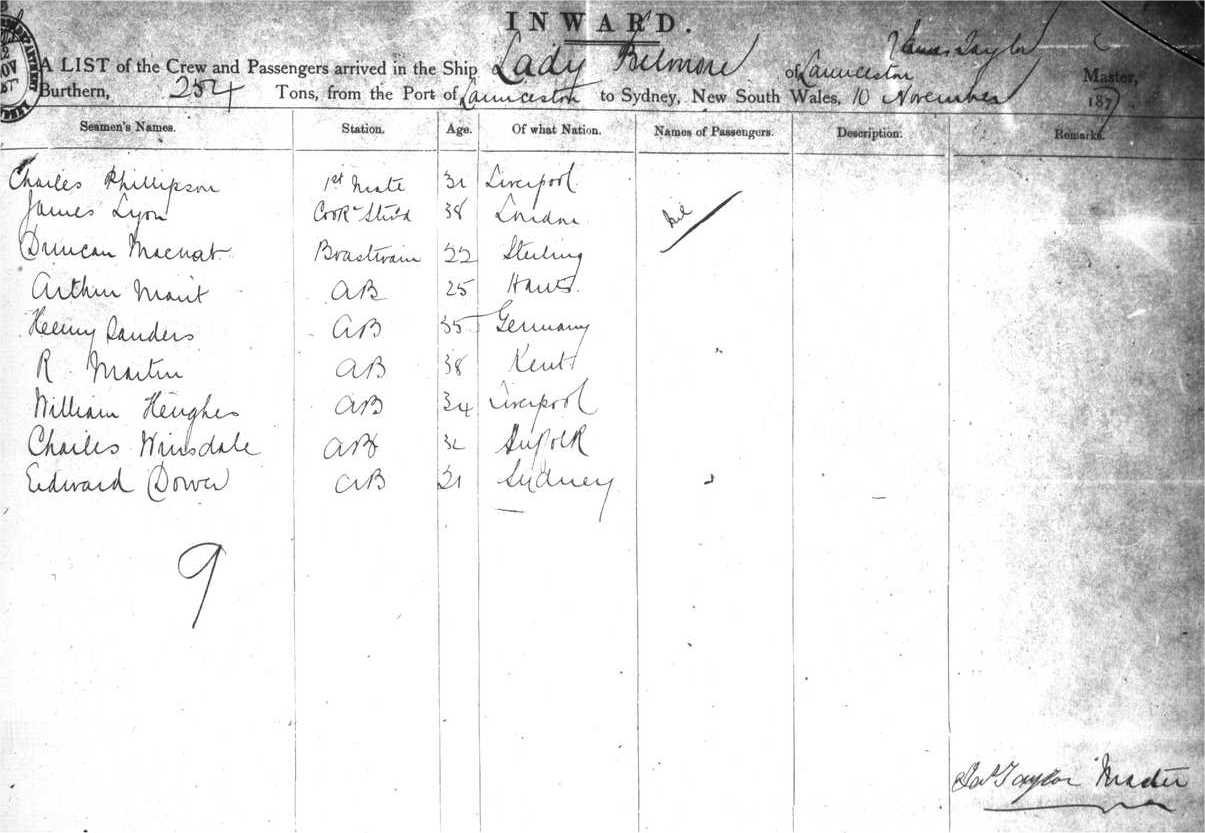 INWARD.
James Taylor
A LIST of the Crew and Passengers arrived in the Ship Lady Belmore of Launceston Master,
Burthern, 254 Tons, from the Port of Launceston to Sydney, New South Wales, 10 November 1877
Seamen's Names. Station. Age. Of what Nation. Names of Passengers. Description. Remarks.
Charles Phillipson 1st Mate 31 Liverpool
James Lyon Cook & Stwd 38 London Nil
Duncan Macnab Boatswain 22 Sterling
Arthur AB 25 Hants
Henry Sanders AB 35 Germany
R Martin AB 38 Kent
William Heughes AB 34 Liverpool
Charles Winsdale AB Suffolk
Edward Dower AB 21 Sydney
9
Jas Taylor Master